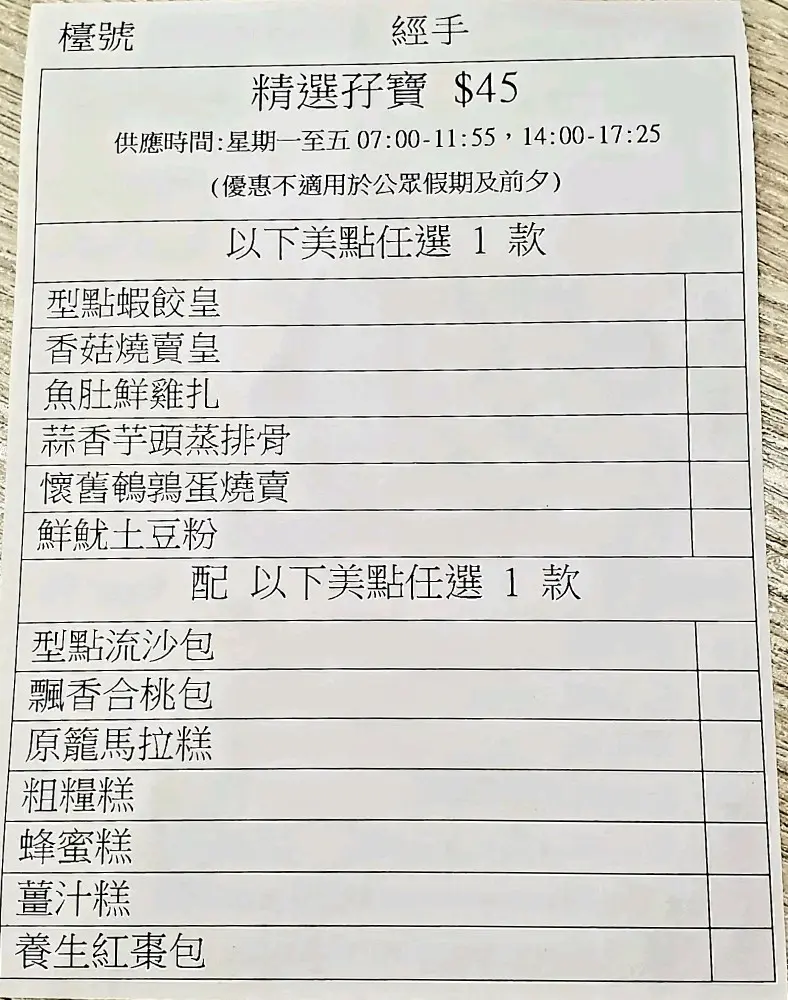 檯號 經手
精選孖寶 $45
供應時間:星期一至五 07:00-11:55，14:00-17:25
(優惠不適用於公眾假期及前夕)
以下美點任選 1 款
型點蝦餃皇
香菇燒賣皇
魚肚鮮雞扎
蒜香芋頭蒸排骨
懷舊鵪鶉蛋燒賣
鮮魷土豆粉
配 以下美點任選 1 款
型點流沙包
飄香合桃包
原籠馬拉糕
粗糧糕
蜂蜜糕
薑汁糕
養生紅棗包